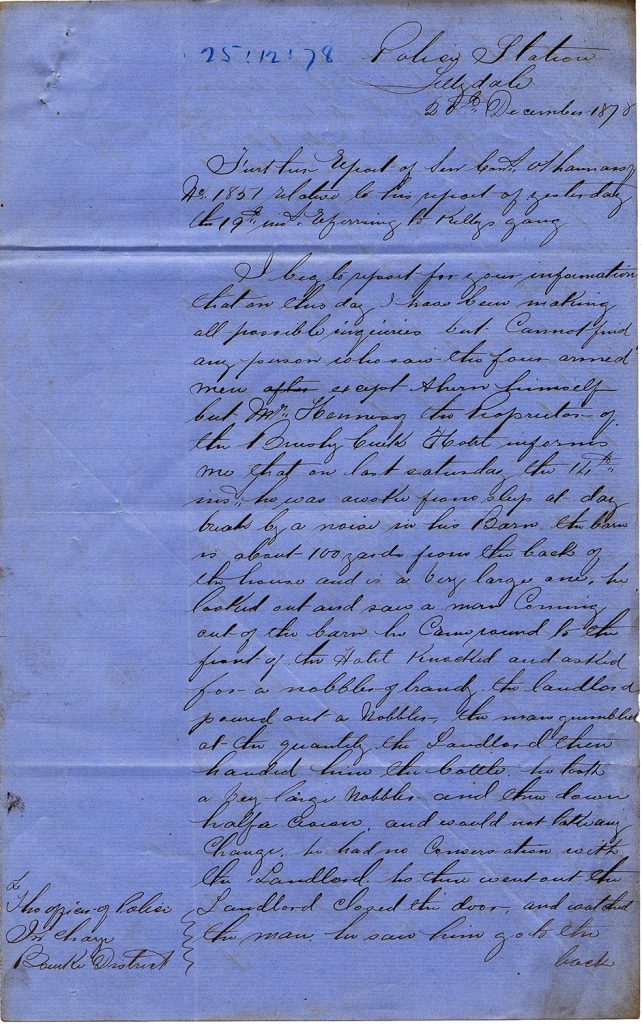 25/12/78
Police Station
Lillydale
20th December 1878
Further Report of Sen Const. O'Shannassy
No. 1851 relative to his report of yesterday
the 19th inst. referring to Kellys gang
I beg to report for your information
that on this day I have been making
all possible inquiries but Cannot find
any person who saw the four armed
men after except Ahern himself
but Mr. Hennessy the Proprietor of
the Brushy Creek Hotel informs
me that on last saturday the 14th
inst. he was awoke from sleep at day
break by a noise in his Barn. the barn
is about 100 yards from the back of
the house and is a very large one, he
looked out and saw a man Coming
out of the barn he Came round to the
front of the Hotel Knocked and asked
for a nobbler of brandy. the landlord
poured out a Nobbler, the man grumbled
at the quantity the Landlord then
handed him the bottle. he took
a very large Nobbler and threw down
half a crown, and would not take any
Change. he had no Conversation with
the Landlord he then went out the
Landlord closed the door, and watched
the man. he saw him go to the
back
To
The officer of Police
In Charge
Bourke District